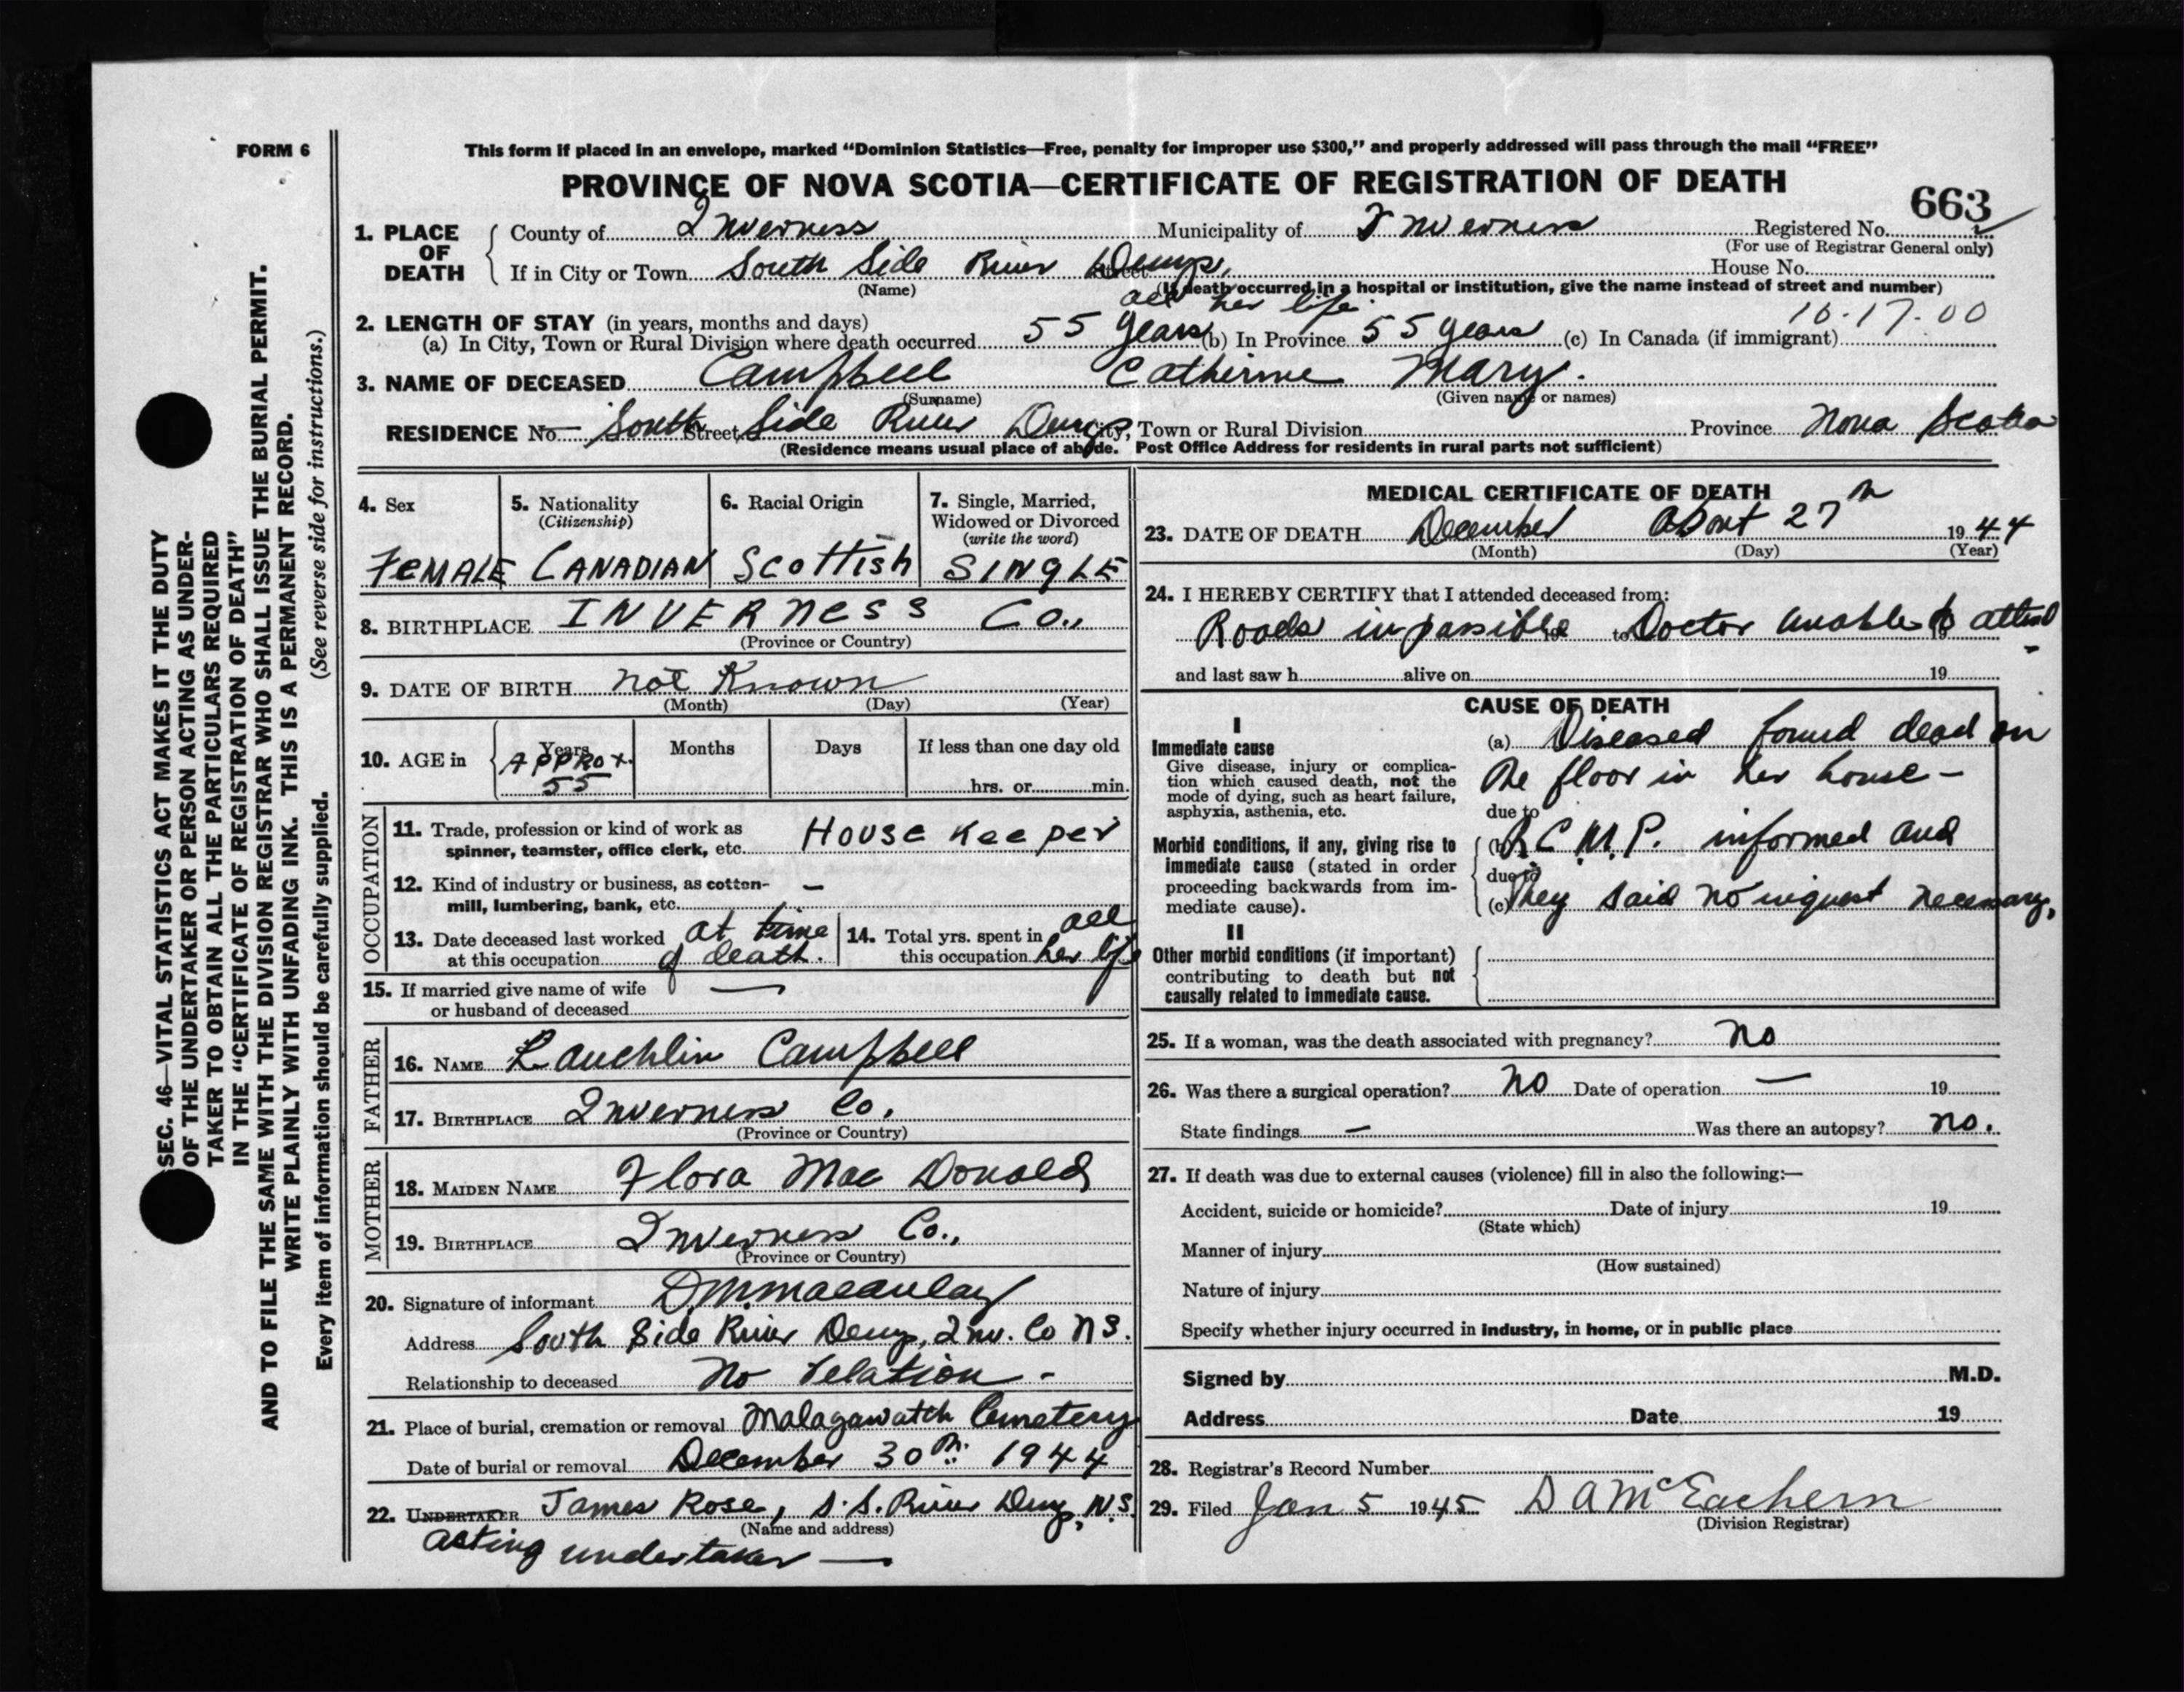 FORM 6
This form if placed in an envelope, marked “Dominion Statistics—Free, penalty for improper use $300,” and properly addressed will pass through the mail “FREE”
PROVINCE OF NOVA SCOTIA—CERTIFICATE OF REGISTRATION OF DEATH
663
1. PLACE OF DEATH
County of Inverness Municipality of Inverness Registered No.
(For use of Registrar General only)
If in City or Town South Side River Denys, Street House No.
(Name) (If death occurred in a hospital or institution, give the name instead of street and number)
all her life
2. LENGTH OF STAY (in years, months and days) 16-17-00
(a) In City, Town or Rural Division where death occurred 55 years (b) In Province 55 years (c) In Canada (if immigrant)
3. NAME OF DECEASED Campbell Catherine Mary.
(Surname) (Given name or names)
RESIDENCE No. South Street Side River Denys City, Town or Rural Division Province Nova Scotia
(Residence means usual place of abode. Post Office Address for residents in rural parts not sufficient)
4. Sex
FEMALE
5. Nationality
(Citizenship)
CANADIAN
6. Racial Origin
Scottish
7. Single, Married,
Widowed or Divorced
(write the word)
SINGLE
8. BIRTHPLACE INVERNESS Co.,
(Province or Country)
9. DATE OF BIRTH not Known
(Month) (Day) (Year)
10. AGE in
Years
APPROX.
55
Months
Days
If less than one day old
hrs. or min.
OCCUPATION
11. Trade, profession or kind of work as
spinner, teamster, office clerk, etc. House Keeper
12. Kind of industry or business, as cotton-
mill, lumbering, bank, etc. —
13. Date deceased last worked at time
at this occupation of death.
14. Total yrs. spent in all
this occupation her life
15. If married give name of wife
or husband of deceased —
FATHER
16. NAME Lauchlin Campbell
17. BIRTHPLACE Inverness Co.
(Province or Country)
MOTHER
18. MAIDEN NAME Flora Mac Donald
19. BIRTHPLACE Inverness Co.,
(Province or Country)
20. Signature of informant D.M. Macaulay
Address South Side River Denys, Inv. Co N S.
Relationship to deceased No relation -
21. Place of burial, cremation or removal Malagawatch Cemetery
Date of burial or removal December 30th 1944
22. UNDERTAKER James Rose, S.S. River Denys, N.S.
(Name and address)
acting undertaker —
MEDICAL CERTIFICATE OF DEATH
23. DATE OF DEATH December about 27th 1944
(Month) (Day) (Year)
24. I HEREBY CERTIFY that I attended deceased from:
Roads impassible to Doctor unable to attend -
and last saw h alive on 19
CAUSE OF DEATH
I
Immediate cause
Give disease, injury or complica-
tion which caused death, not the
mode of dying, such as heart failure,
asphyxia, asthenia, etc.
(a) Diseased found dead on
the floor in her house -
due to
Morbid conditions, if any, giving rise to
immediate cause (stated in order
proceeding backwards from im-
mediate cause).
(b) R.C.M.P. informed and
due to
(c) They said no inquest necessary,
II
Other morbid conditions (if important)
contributing to death but not
causally related to immediate cause.
25. If a woman, was the death associated with pregnancy? No
26. Was there a surgical operation? No Date of operation — 19
State findings — Was there an autopsy? No.
27. If death was due to external causes (violence) fill in also the following:—
Accident, suicide or homicide? Date of injury 19
(State which)
Manner of injury
(How sustained)
Nature of injury
Specify whether injury occurred in industry, in home, or in public place
Signed by M.D.
Address Date 19
28. Registrar's Record Number
29. Filed Jan 5 1945 D A McEachern
(Division Registrar)
SEC. 46—VITAL STATISTICS ACT MAKES IT THE DUTY
OF THE UNDERTAKER OR PERSON ACTING AS UNDER-
TAKER TO OBTAIN ALL THE PARTICULARS REQUIRED
IN THE “CERTIFICATE OF REGISTRATION OF DEATH”
AND TO FILE THE SAME WITH THE DIVISION REGISTRAR WHO SHALL ISSUE THE BURIAL PERMIT.
WRITE PLAINLY WITH UNFADING INK. THIS IS A PERMANENT RECORD.
Every item of information should be carefully supplied. (See reverse side for instructions.)